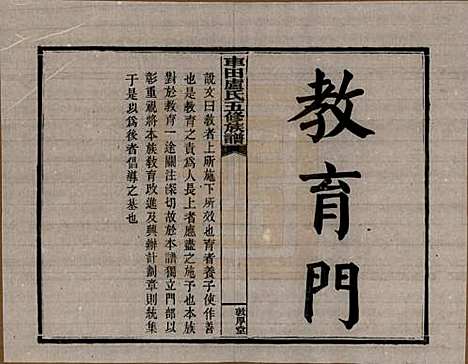 教育門
車田盧氏五修族譜
敦厚堂
說文曰教者上所施下所效也育者養子使作善
也是教育之責為人長上者應盡之施予也本族
對於教育一途關注深切故於本譜獨立門部以
彰重視將本族教育改進及興辦計劃章則統集
于是以為後者倡導之基也